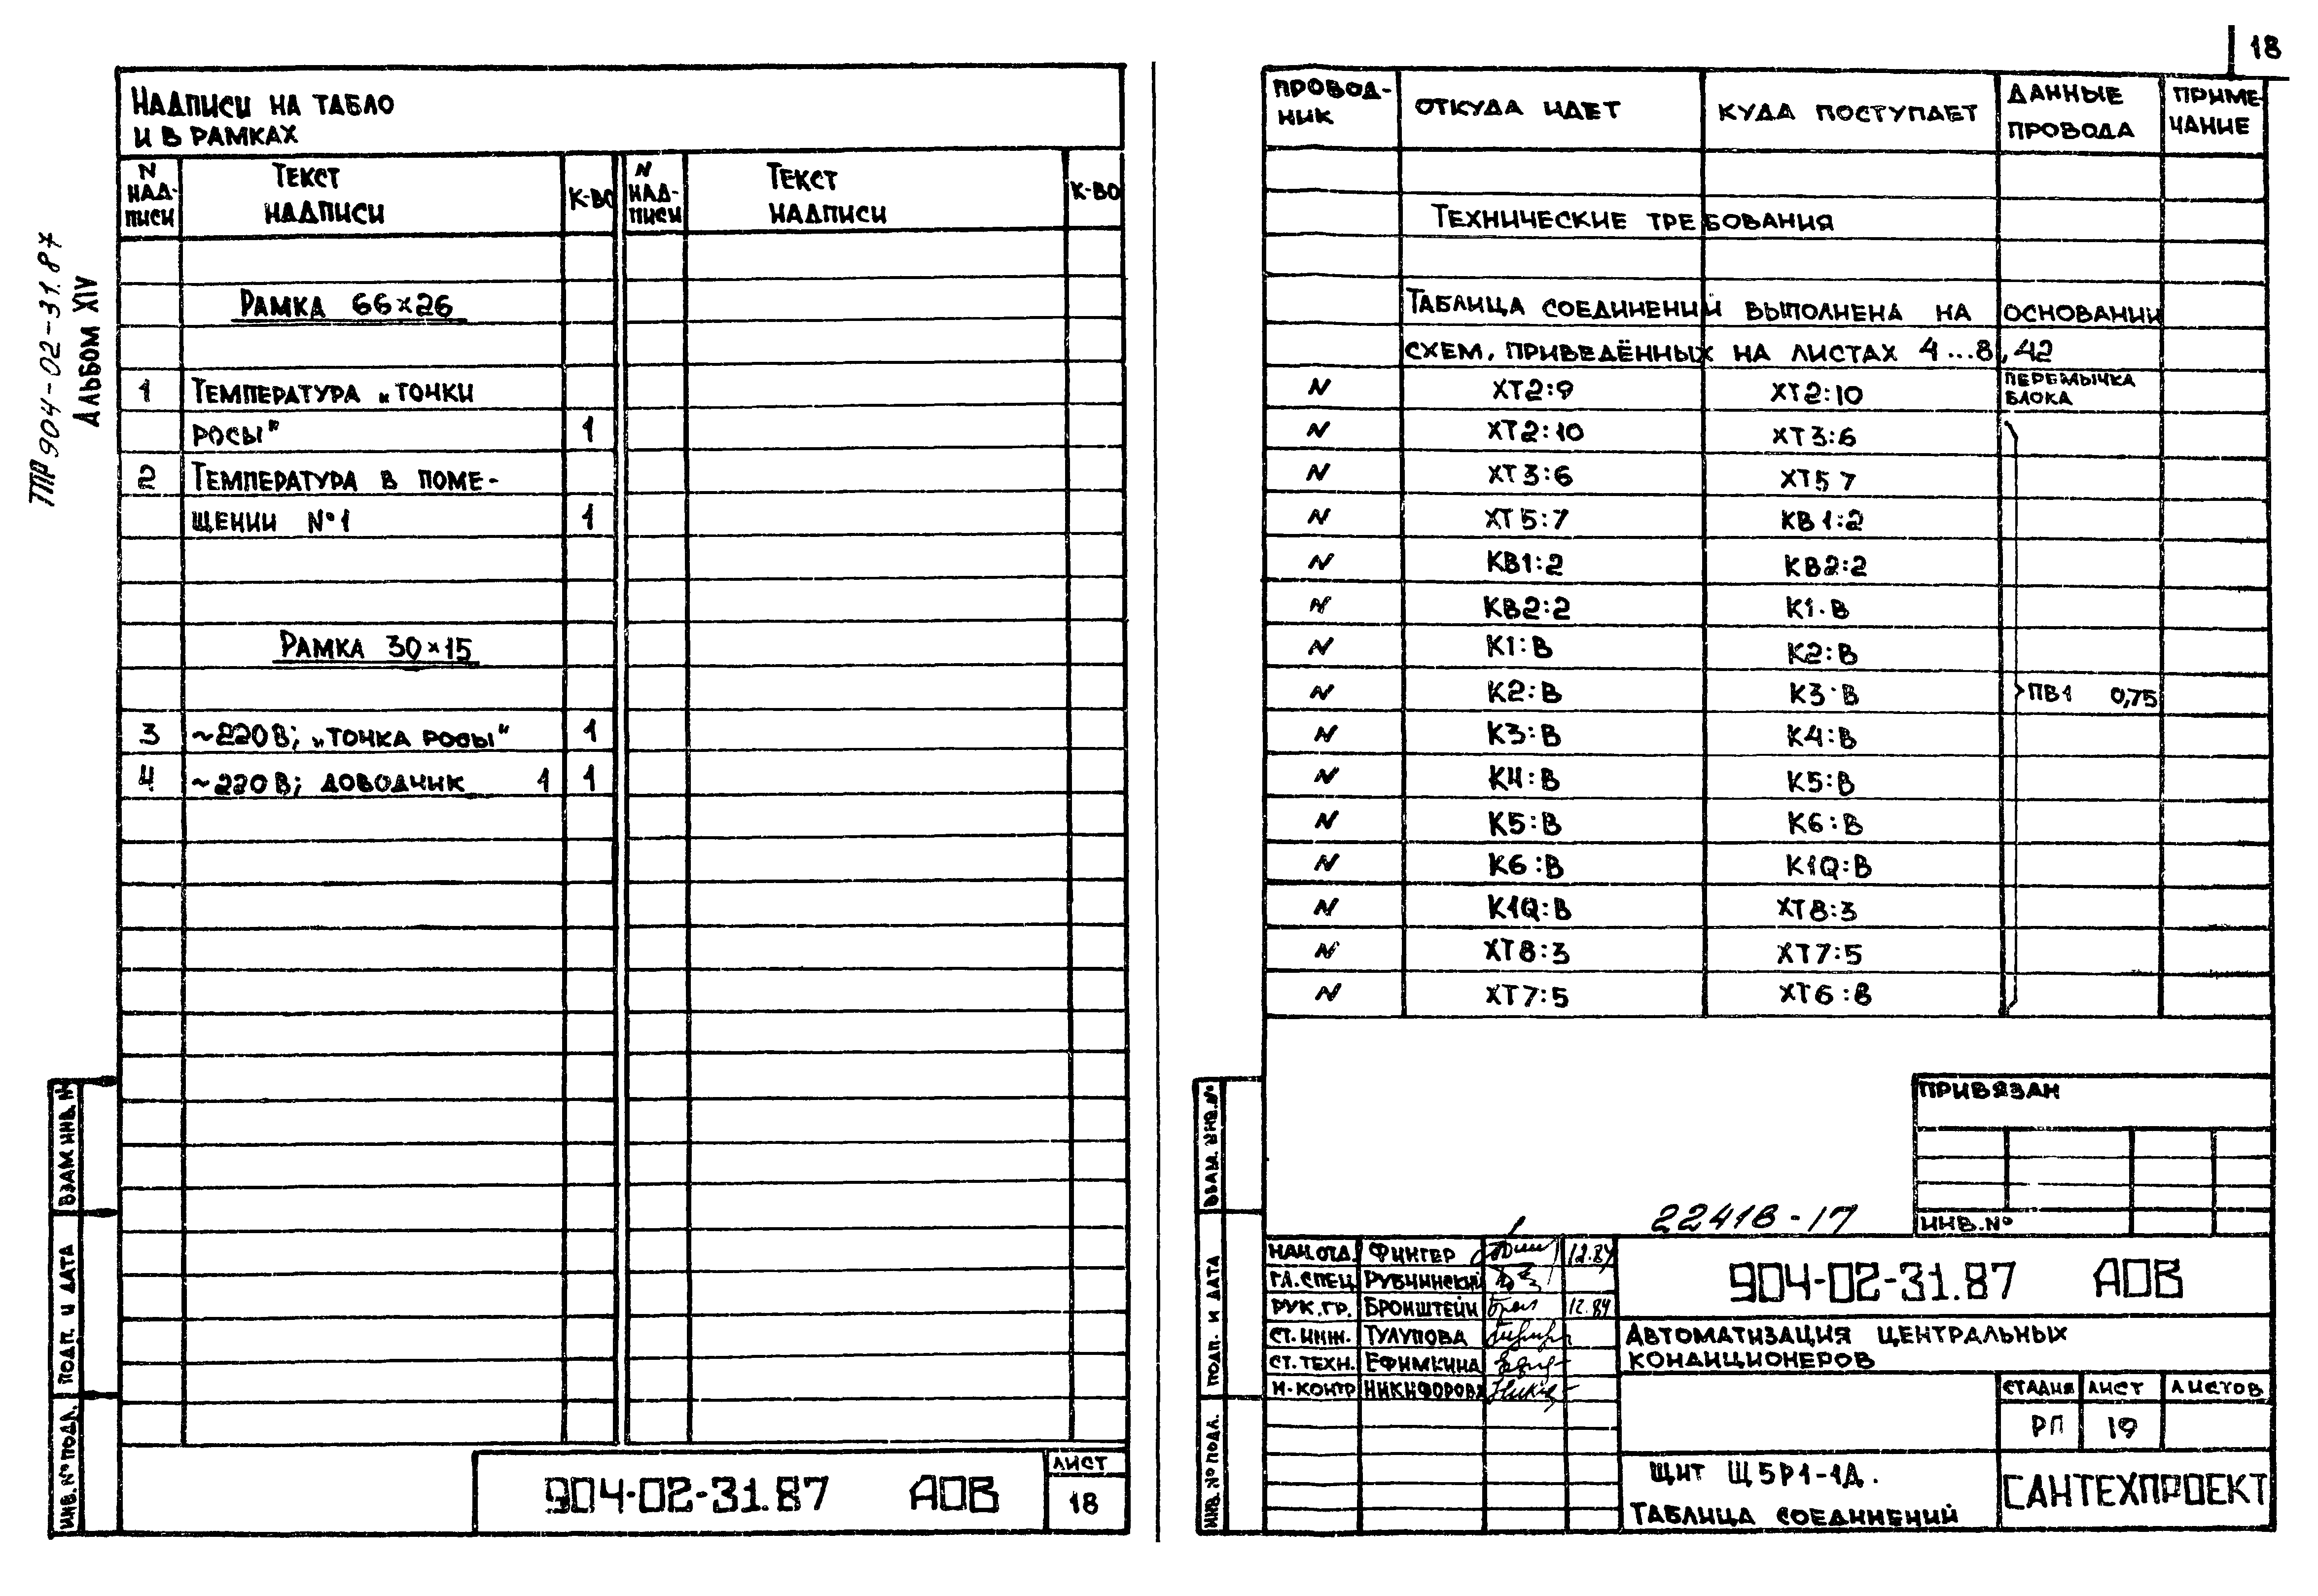 18
ТПР 904-02-31.87
АЛЬБОМ XIV
НАДПИСИ НА ТАБЛО
И В РАМКАХ
N НАД-ПИСИ ТЕКСТ НАДПИСИ К-ВО N НАД-ПИСИ ТЕКСТ НАДПИСИ К-ВО
РАМКА 66×26
1 ТЕМПЕРАТУРА „ТОЧКИ
РОСЫ" 1
2 ТЕМПЕРАТУРА В ПОМЕ-
ЩЕНИИ №1 1
РАМКА 30×15
3 ~220В; „ТОЧКА РОСЫ" 1
4 ~220В; ДОВОДЧИК 1 1
ВЗАМ ИНВ. №
ПОДП. И ДАТА
ИНВ. № ПОДЛ.
904-02-31.87 АОВ
ЛИСТ
18
ПРОВОД-НИК ОТКУДА ИДЕТ КУДА ПОСТУПАЕТ ДАННЫЕ ПРОВОДА ПРИМЕ-ЧАНИЕ
ТЕХНИЧЕСКИЕ ТРЕБОВАНИЯ
ТАБЛИЦА СОЕДИНЕНИЙ ВЫПОЛНЕНА НА ОСНОВАНИИ
СХЕМ, ПРИВЕДЁННЫХ НА ЛИСТАХ 4...8, 42
N ХТ2:9 ХТ2:10 ПЕРЕМЫЧКА БЛОКА
N ХТ2:10 ХТ3:6
N ХТ3:6 ХТ5 7
N ХТ5:7 КВ1:2
N КВ1:2 КВ2:2
N КВ2:2 К1.В
N К1:В К2:В
N К2:В К3:В ПВ1 0,75
N К3:В К4:В
N К4:В К5:В
N К5:В К6:В
N К6:В К1Q:В
N К1Q:В ХТ8:3
N ХТ8:3 ХТ7:5
N ХТ7:5 ХТ6:8
ПРИВЯЗАН
ИНВ.№
22418-17
ВЗАМ. ИНВ.№
ПОДП. И ДАТА
ИНВ. № ПОДЛ.
НАЧ.ОТД. ФИНГЕР 12.87
ГЛ.СПЕЦ РУБЧИНСКИЙ
РУК.ГР. БРОНШТЕЙН 12.87
СТ.ИНЖ. ТУЛУПОВА
СТ.ТЕХН. ЕФИМКИНА
Н.КОНТР НИКИФОРОВА
904-02-31.87 АОВ
АВТОМАТИЗАЦИЯ ЦЕНТРАЛЬНЫХ
КОНДИЦИОНЕРОВ
СТАДИЯ ЛИСТ ЛИСТОВ
РП 19
ЩИТ Щ5Р1-1Д.
ТАБЛИЦА СОЕДИНЕНИЙ
САНТЕХПРОЕКТ